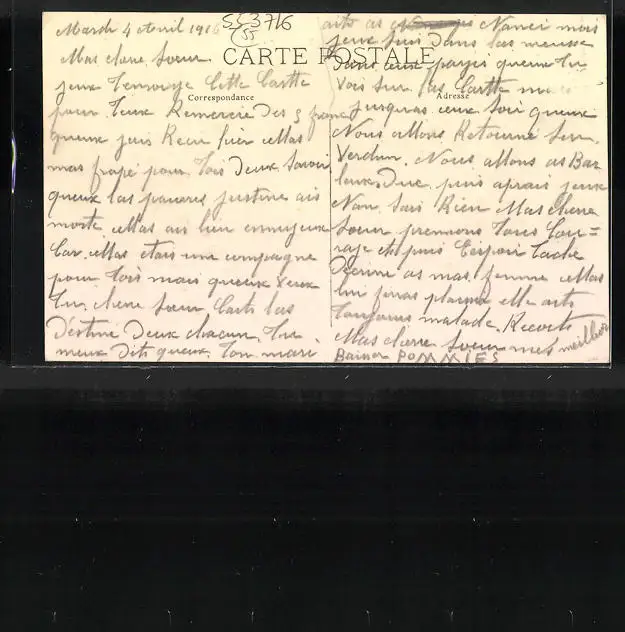 Mardi 4 Avril 1916
SS3716
(55)
CARTE POSTALE
Correspondance
Adresse
Mas chere Soeur
jeux Tenvoye Cette Cartte
pour Teux Remercie Des 5 franc
queux jais Recu hier ellas
mas frapé pour Tois Deux Savoir
queux las pauvres justine ais
morte ellas ais bien ennuyeux
Car ellas etais une compagne
pour Tois mais queux veux
Tu, chere Soeur Cests las
Déstiné Deux chacun. Tu
meux Dit queux Ton mari
aits as Nanci mois
jeux suis Dans las meuse
Dans ceux payis queux Tu
Vois Sur las Cartte
jusquas ceux Soir queux
Nous allons Retourné Sur
Verdun. Nous allons as Bar
leux Duc, puis aprais jeux
Nan Sais Rien Mas Chere
Soeur prennons Tous Cou=
rage et puis Éspoir Tache
Décrire as mas femme ellas
lui feras plaisir elle aits
Toujours malade. Recoits
Mas chere Soeur mes meilleur
Baiser POMMIES